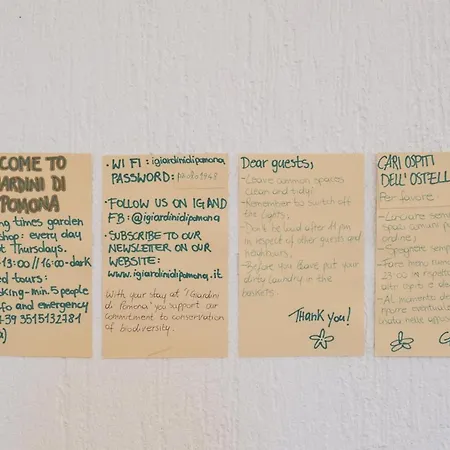 COME TO
ARDINI DI
POMONA
ng times garden
shop: every day
t Thursdays.
-13:00//16:00-dark
ed tours:
king-min.5 people
fo and emergency
+39 3515132781
a)
• WI FI: igiardinidipomona
PASSWORD:
• FOLLOW US ON IG AND
FB: @igiardinidipomona
• SUBSCRIBE TO OUR
NEWSLETTER ON OUR
WEBSITE:
www.igiardinidipomona.it
With your stay at "I Giardini
di Pomona" you support our
commitment to conservation
of biodiversity.
Dear guests,
- Leave common spaces
clean and tidy!
- Remember to switch off
the lights;
- Don't be loud after 11 pm
in respect of other guests and
neighbours;
- Before you leave put your
dirty laundry in the
baskets.
Thank you!
CARI OSPITI
DELL'OSTELL
Per favore
- Lasciare sem
spazi comuni p
ordine;
- Spegnete semp
- Fare meno rumo
23:00 in rispetto
altri ospiti e dei
- Al momento de
porre
G